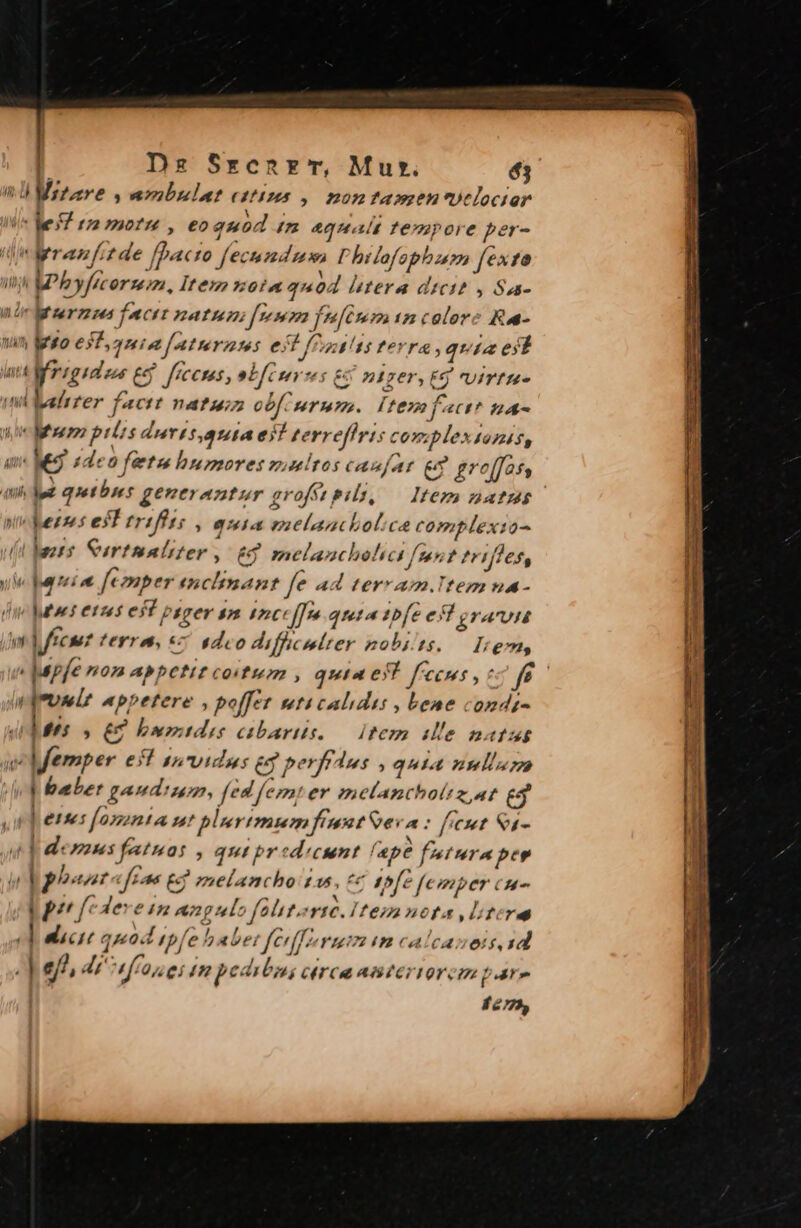 DE SECRET. MUL. 63
mitare, ambulat citius, non tamen velocior
est in motu, eo quòd in æquali tempore per-
transit de spacio secundum Philosophum sexto
Physicorum, Item nota quòd litera dicit, Sa-
turnus facit natum suum fuscum in colore Ra-
tio est, quia saturnus est similis terræ, quia est
frigidus & siccus, obscurus & niger, & virtu-
aliter facit natum obscurum. Item facit na-
tum pilis duris, quia est terrestris complexionis,
& ideò fœtu humores multos causat & grossos,
ex quibus generantur grossi pili, Item natus
eius est tristis, quia melancholicæ complexio-
nis virtualiter, & melancholici sunt tristes,
quia semper inclinant se ad terram. Item na-
tus eius est piger in incessu, quia ipse est gravis
sicut terra, & ideo difficulter mobilis. Item,
ipse non appetit coitum, quia est siccus, & si
vult appetere, posset uti calidis, bene condi-
tis, & humidis cibariis. Item ille natus
semper est invidus & perfidus, quia nullum
habet gaudium, sed semper melancholiz̧at &
eius somnia ut plurimum fiunt vera: sicut vi-
demus fatuos, qui prædicunt sæpè futura per
phantasias & melancholias, & ipse semper cu-
pit sedere in angulo solitariè. Item nota, litera
dicit quòd ipse habet scissuram in calcaneis, id
est, divisiones in pedibus circa anteriorem par-
tem,